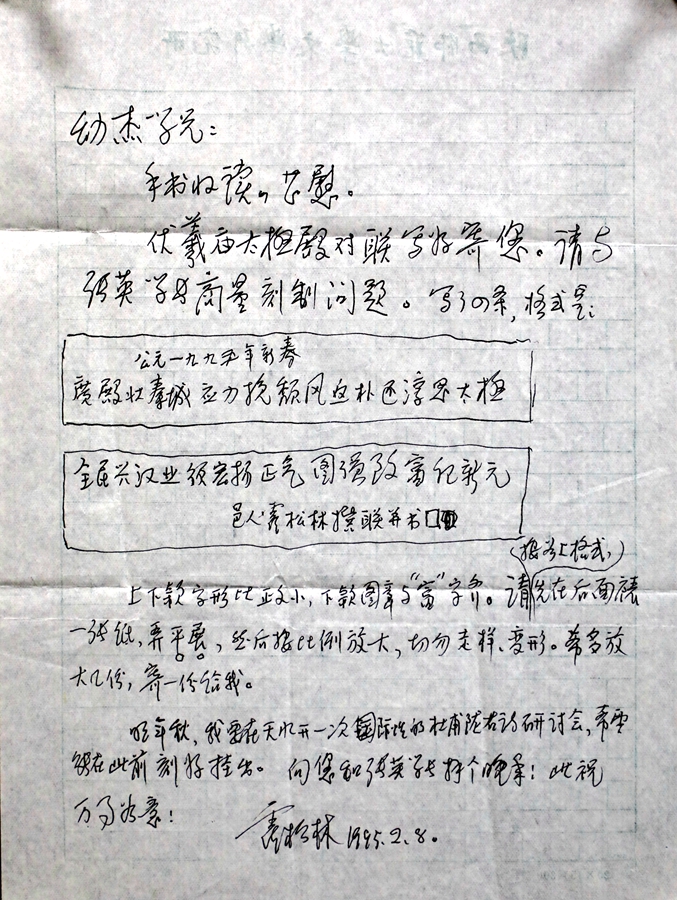 幼杰学兄：
手书收读，甚慰。
伏羲庙太极殿对联写好寄您。请与
张英学长商量刻制问题。写了四条，格式是：
公元一九九五年新春
广殿壮秦城应力挽颓风返朴还淳思太极
全民兴汉业须宏扬正气图强致富纪新元
邑人霍松林撰联并书
（按以上格式，）
上下款字形比正文小，下款图章与“富”字齐。请先在后面裱
一张纸，弄平展，然后按比例放大，切勿走样、变形。希多放
大几份，寄一份给我。
明年秋，我要在天水开一次国际性的杜甫陇右诗研讨会，希望
能在此前刻好挂出。向您和张英学长拜个晚年！此祝
万事如意！
霍松林 1995.2.8.